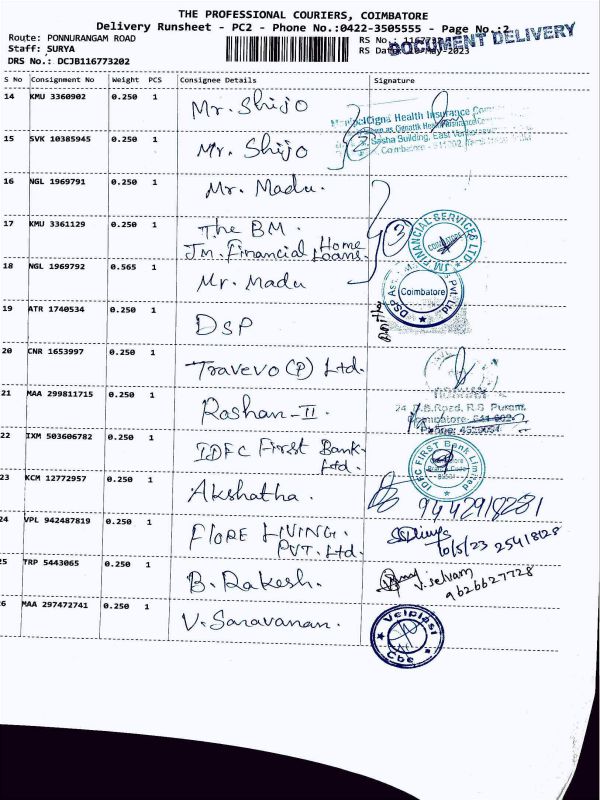 THE PROFESSIONAL COURIERS, COIMBATORE
Delivery Runsheet - PC2 - Phone No.:0422-3505555 - Page No.:2
Route: PONNURANGAM ROAD
Staff: SURYA
DRS No.: DCJB116773202
RS No.:
RS Date
-May-2023
DOCUMENT DELIVERY
S No Consignment No Weight PCS Consignee Details Signature
14 KMU 3360902 0.250 1 Mr. Shijo
Health Insurance
15 SVK 10385945 0.250 1 Mr. Shijo
Building, East
16 NGL 1969791 0.250 1 Mr. Madu.
17 KMU 3361129 0.250 1 The BM.
Jm. Financial Home Loans.
3
JM FINANCIAL SERVICES LTD
18 NGL 1969792 0.565 1 Mr. Madu
DSP
Pvt Ltd
Coimbatore
19 ATR 1740534 0.250 1 DSP
20 CNR 1653997 0.250 1 Travevo (P) Ltd.
21 MAA 299811715 0.250 1 Roshan-II.
24 D.B.Road, R.S Puram,
22 IXM 503606782 0.250 1 IDFC First Bank Ltd.
IDFC FIRST Bank Limited
23 KCM 12772957 0.250 1 Akshatha.
9442918281
24 VPL 942487819 0.250 1 FLORE LIVING. PVT. Ltd.
10/5/23 25418128
25 TRP 5443065 0.250 1 B. Rakesh.
V. Selvam
9626627728
26 MAA 297472741 0.250 1 V. Saravanan.
Cbe